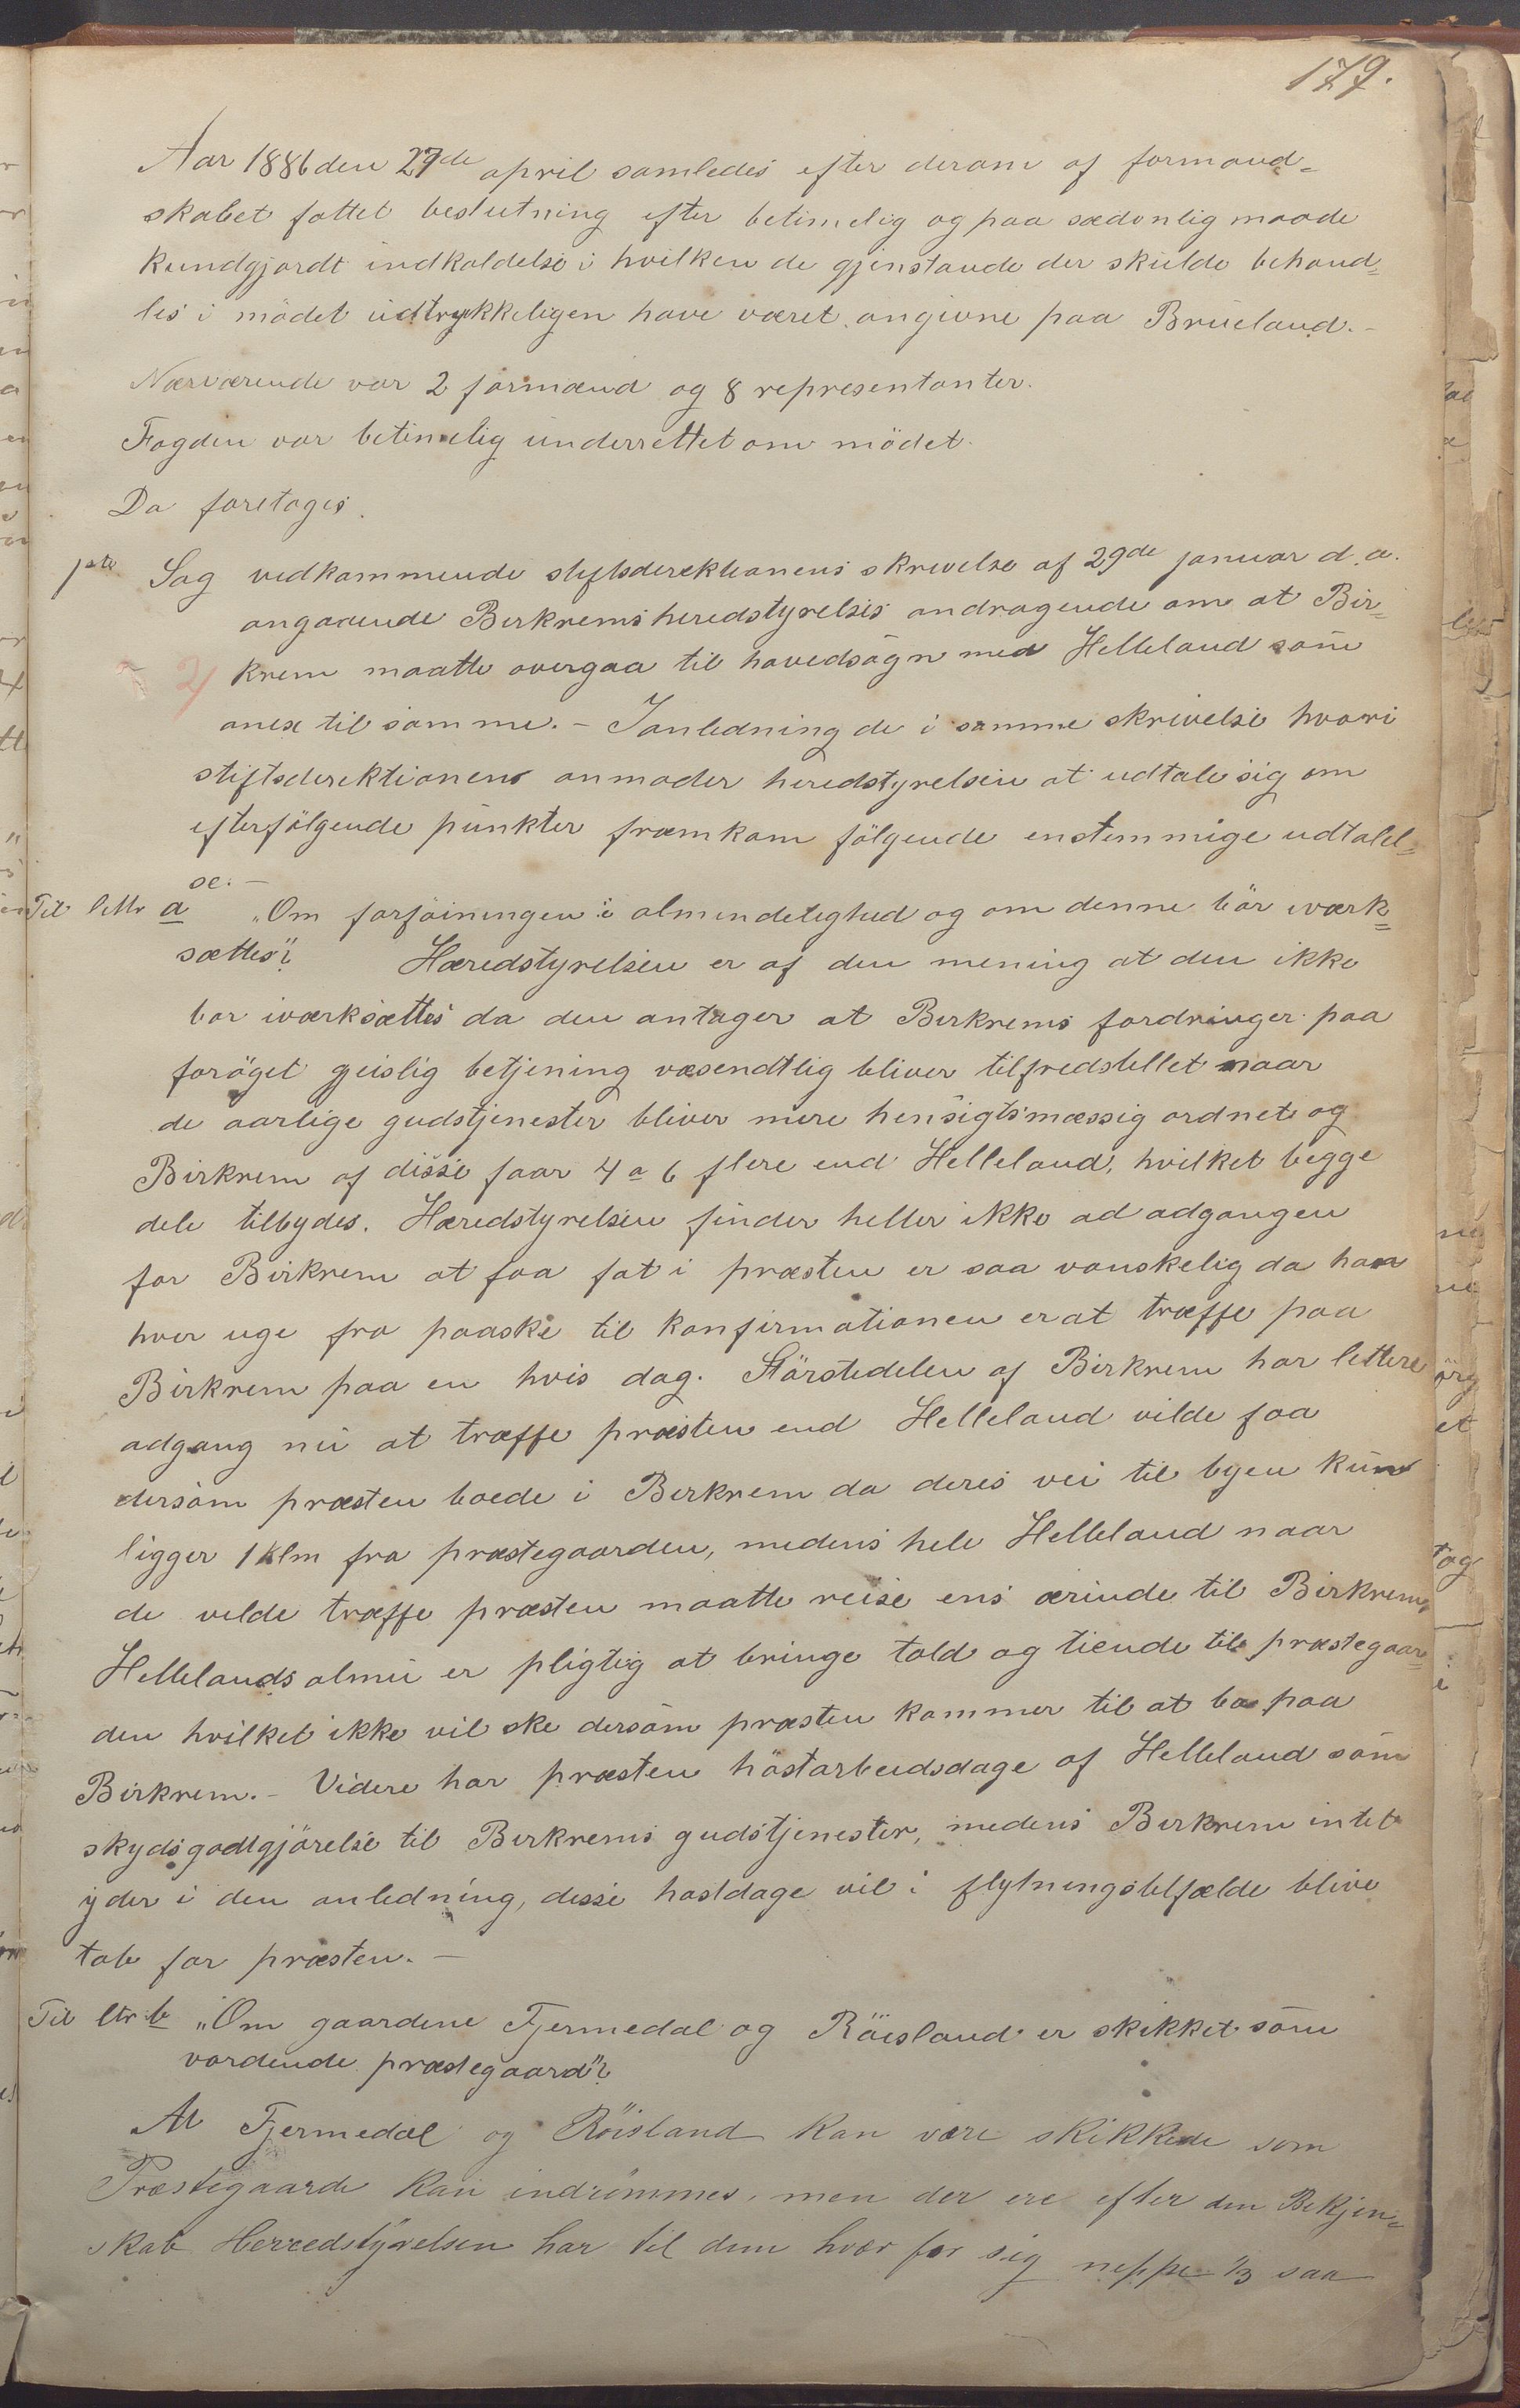 179.
Aar 1886 den 27de april samledes efter derom af formand-
skabet fattet beslutning efter betimelig og paa sædvanlig maade
kundgjordt indkaldelse i hvilken de gjenstande der skulde behand-
les i mödet udtrykkeligen have været angivne paa Brueland. -
Nærværende var 2 formænd og 8 representanter.
Fogden var betimelig underrettet om mödet.
Da foretoges.
1ste Sag vedkommende stiftsdirektionens skrivelse af 29de januar d.a.
angaaende Birkrems heredstyrelses andragende om at Bir-
krem maatte overgaa til hovedsogn med Helleland som
anex til samme. - I anledning de i samme skrivelse hvori
stiftsderektionens anmoder heredstyrelsen at udtale sig om
efterfölgende punkter fræmkom fölgende enstemmige udtalel-
se. -
Til littr a „Om forföiningen i almindelighed og om denne bör iværk-
sættes"? Hæredstyrelsen er af den mening at den ikke
bor iværksættes da den antager at Birkrems fordringer paa
foröget geislig betjening væsendtlig bliver tilfredstillet naar
de aarlige gudstjenester bliver mere hensigtsmæssig ordnet og
Birkrem af disse faar 4 a 6 flere end Helleland, hvilket begge
dele tilbydes. Hæredstyrelsen finder heller ikke ad adgangen
for Birkrem at faa fat i præsten er saa vanskelig da han
hver uge fra paaske til konfirmationen er at træffe paa
Birkrem paa en hvis dag. Störstedelen af Birkrem har lettere
adgang nu at træffe præsten end Helleland vilde faa
dersom præsten boede i Birkrem da deres vei til byen kun
ligger 1 klm fra præstegaarden, medens hele Helleland naar
de vilde træffe præsten maatte reise ens ærinde til Birkrem.
Hellelands almu er pligtig at bringe told og tiende til præstegaar-
den hvilket ikke vil ske dersom præsten kommer til at bo paa
Birkrem. - Videre har præsten höstarbeidsdage af Helleland som
skydsgodtgjörelse til Birkrems gudstjenester, medens Birkrem intet
yder i den anledning, disse hostdage vil i flytningstelfælde blive
tab for præsten. -
Til ltr b „Om gaardene Fjermedal og Röisland er skikket som
vordende præstegaard"?
At Fjermedal og Röisland kan være skikkede som
Præstegaarde kan indrömmes, men der ere efter den Bekjen-
skab Herredstyrelsen har til dem hver for sig neppe 1/3 saa